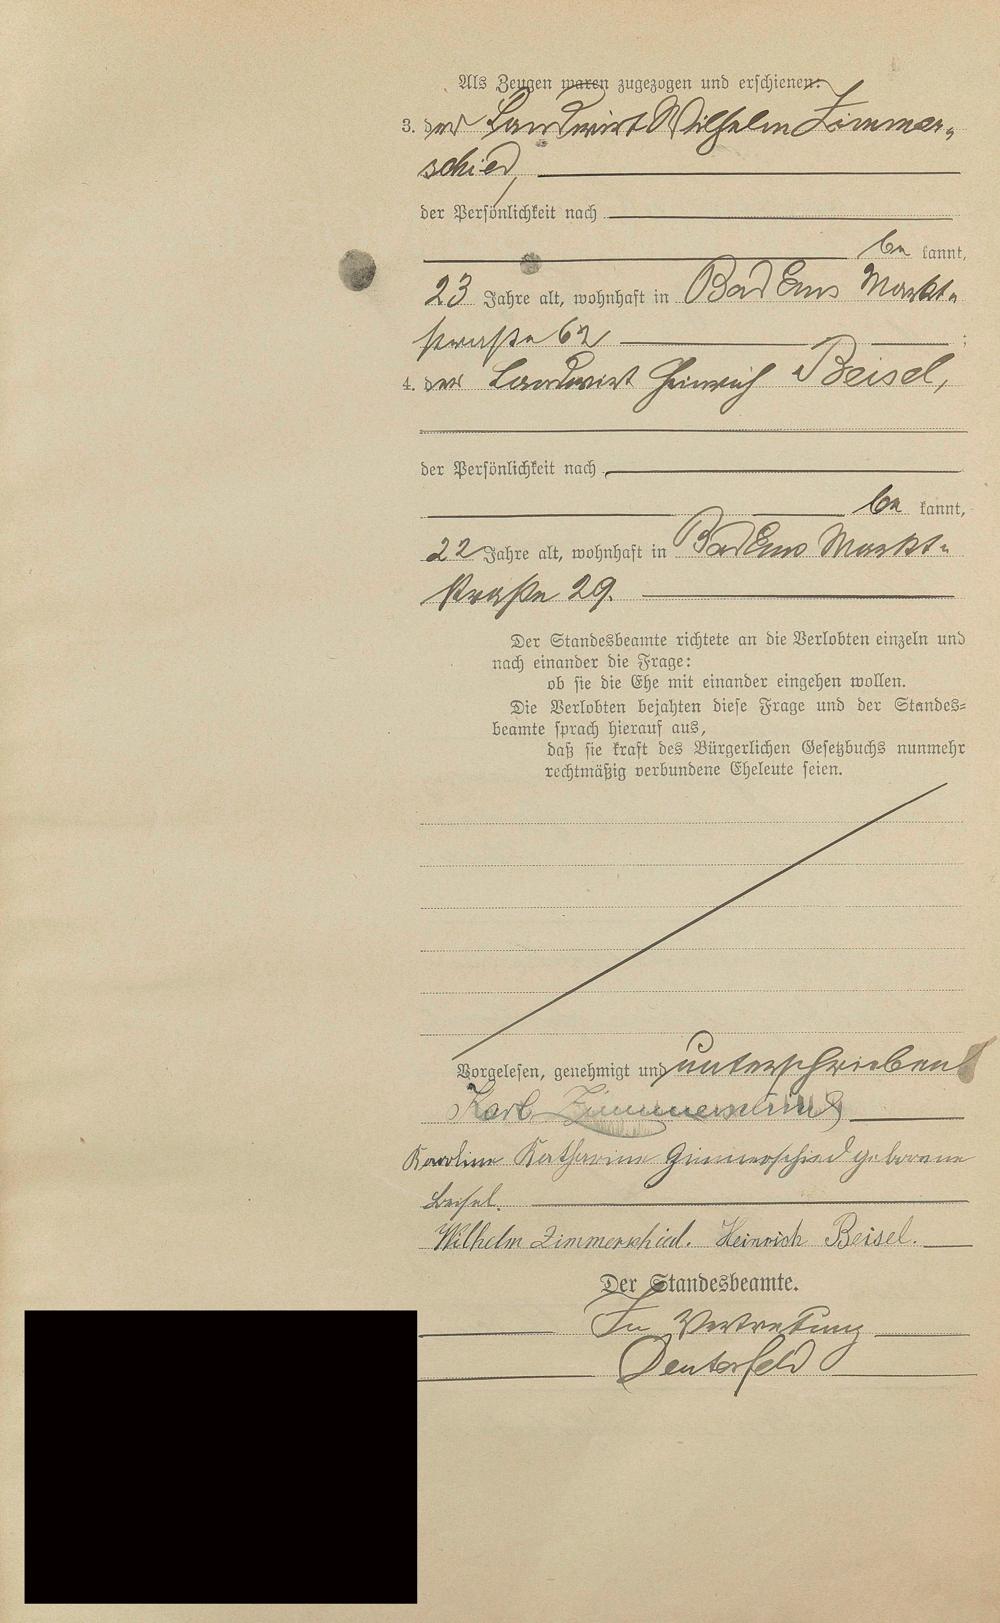 Als Zeugen waren zugezogen und erschienen:
3. der Landwirt Wilhelm Zimmer-
schied,
der Persönlichkeit nach
be kannt,
23 Jahre alt, wohnhaft in Bad Ems Markt-
straße 62
4. der Landwirt Heinrich Beisel,
der Persönlichkeit nach
be kannt,
22 Jahre alt, wohnhaft in Bad Ems Markt-
straße 29.
Der Standesbeamte richtete an die Verlobten einzeln und
nach einander die Frage:
ob sie die Ehe mit einander eingehen wollen.
Die Verlobten bejahten diese Frage und der Standes-
beamte sprach hierauf aus,
daß sie kraft des Bürgerlichen Gesetzbuchs nunmehr
rechtmäßig verbundene Eheleute seien.
Vorgelesen, genehmigt und unterschrieben
Karl Zimmerschied
Karoline Katharine Zimmerschied geborene
Beisel.
Wilhelm Zimmerschied. Heinrich Beisel.
Der Standesbeamte.
In Vertretung